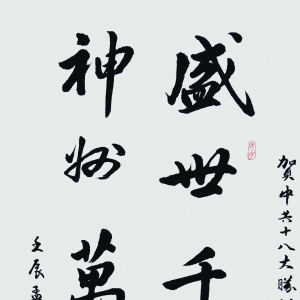 賀中共十八大勝
盛世千
神州萬
壬辰孟